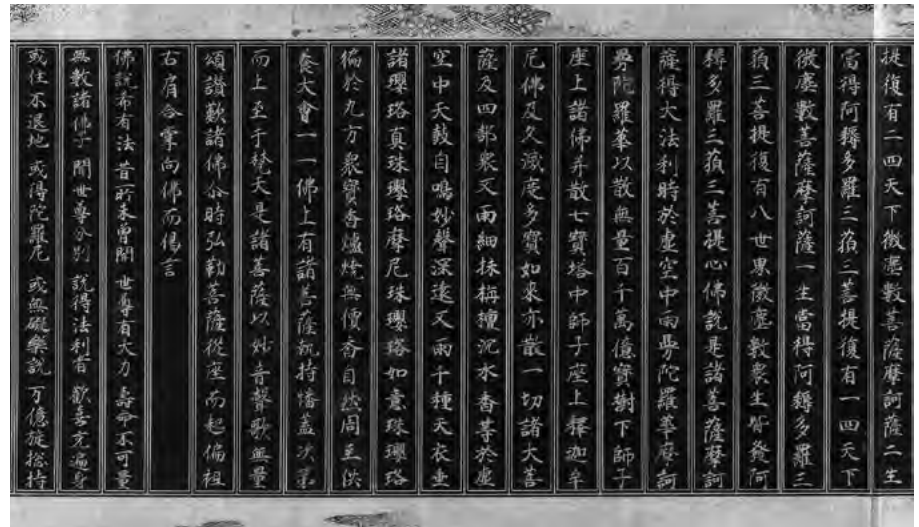 提復有二四天下微塵數菩薩摩訶薩二生
當得阿耨多羅三藐三菩提復有一四天下
微塵數菩薩摩訶薩一生當得阿耨多羅三
藐三菩提復有八世界微塵數衆生皆發阿
耨多羅三藐三菩提心佛說是諸菩薩摩訶
薩得大法利時於虛空中雨曼陀羅華摩訶
曼陀羅華以散無量百千萬億寶樹下師子
座上諸佛并散七寶塔中師子座上釋迦牟
尼佛及久滅度多寶如來亦散一切諸大菩
薩及四部衆又雨細抹栴檀沉水香等於虛
空中天鼓自鳴妙聲深遠又雨千種天衣垂
諸瓔珞真珠瓔珞摩尼珠瓔珞如意珠瓔珞
遍於九方衆寶香爐燒無價香自然周至供
養大會一一佛上有諸菩薩執持幡蓋次第
而上至于梵天是諸菩薩以妙音聲歌無量
頌讚歎諸佛尒時弥勒菩薩從座而起偏袒
右肩合掌向佛而偈言
佛說希有法 昔所未曾聞 世尊有大力 壽命不可量
無數諸佛子 聞世尊分別 說得法利者 歡喜充遍身
或住不退地 或得陀羅尼 或無礙樂說 万億旋捴持